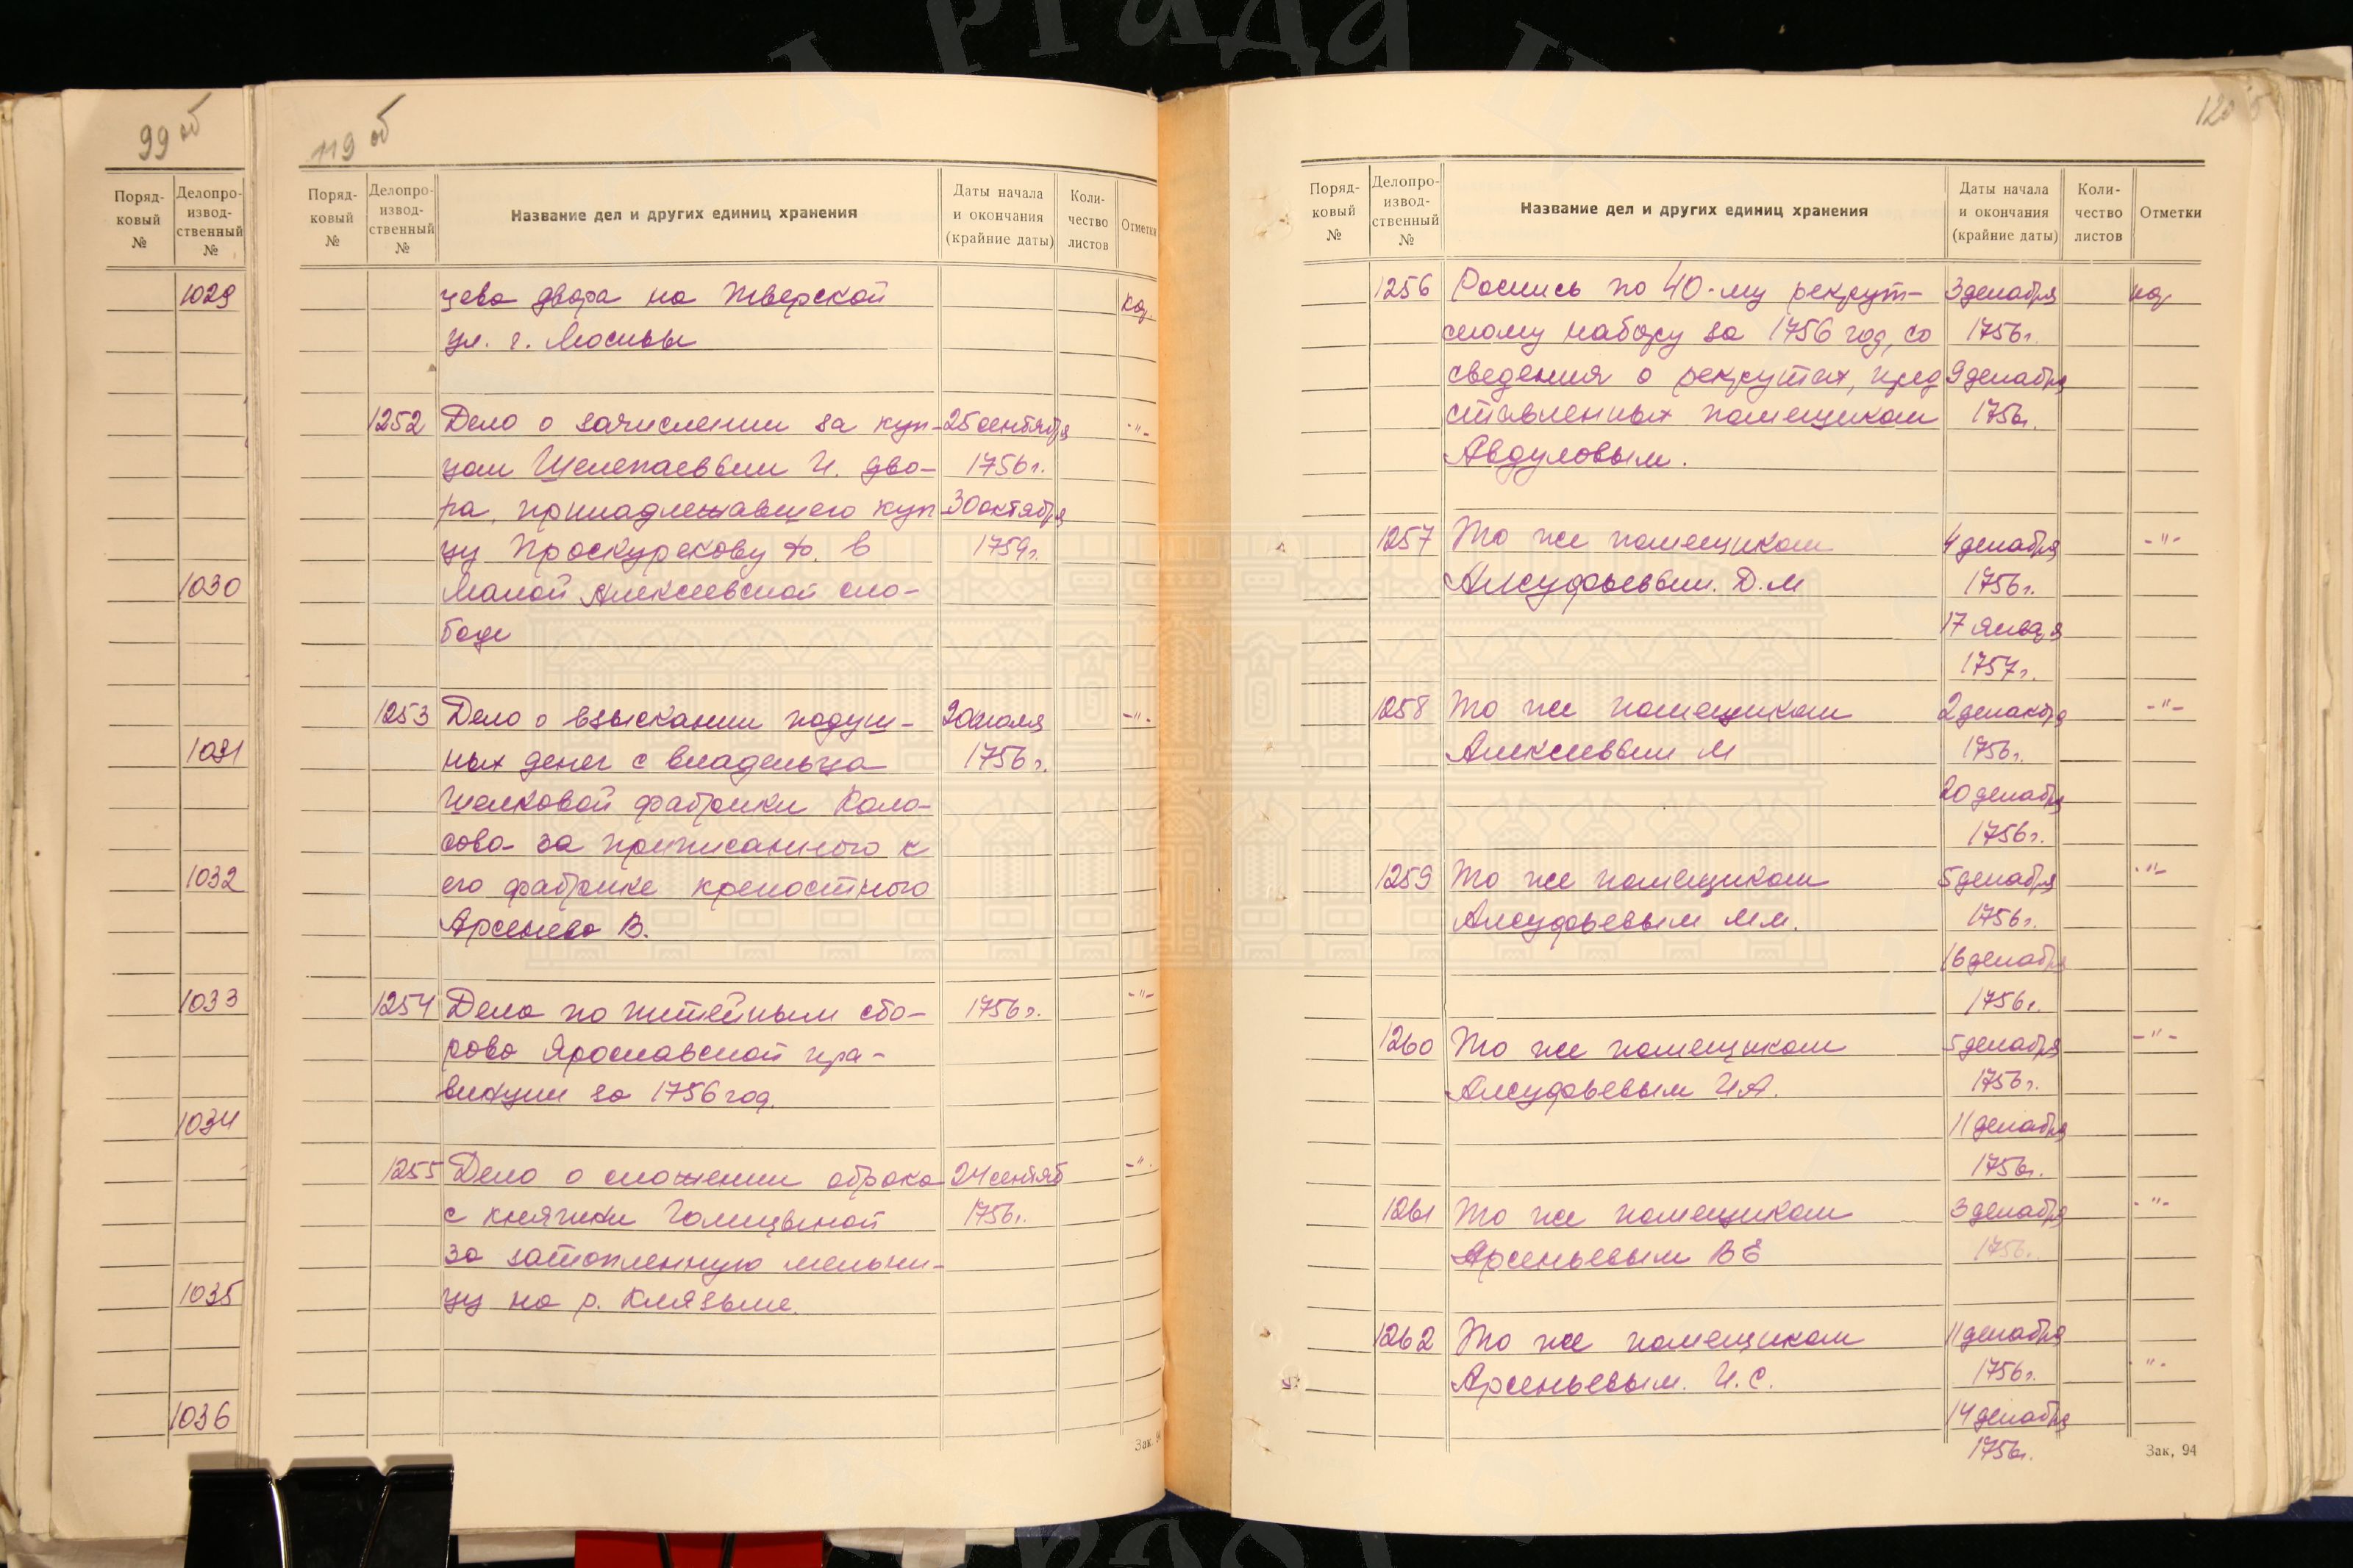 99 об
Поряд-
ковый
№
Делопро-
извод-
ственный
№
1029
1030
1031
1032
1033
1034
1035
1036
119 об
Поряд-
ковый
№
Делопро-
извод-
ственный
№
Название дел и других единиц хранения
Даты начала
и окончания
(крайние даты)
Коли-
чество
листов
Отметки
цева двора на Тверской
ул. г. Москвы
1252 Дело о зачислении за куп- 25 сентября -"-
цом Шелепаевым И. дво- 1756 г.
ра, принадлежавшего куп 30 октября
цу Проскурекову Ф. в 1759 г.
Малой Алексеевской сло-
боде
1253 Дело о взыскании подуш- 20 июля -"-
ных денег с владельца 1756 г.
шелковой фабрики Коло-
сова за приписанного к
его фабрике крепостного
Арсеньева В.
1254 Дела по питейным сбо- 1756 г. -"-
рова Ярославской пра-
винции за 1756 год.
1255 Дело о сложении оброка 24 сентяб -"-
с княгини Голицыной 1756 г.
за затопленную мельни-
цу на р. Клязьме.
Зак. 94
120
Поряд-
ковый
№
Делопро-
извод-
ственный
№
Название дел и других единиц хранения
Даты начала
и окончания
(крайние даты)
Коли-
чество
листов
Отметки
1256 Роспись по 40-му рекрут- 3 декабря
скому набору за 1756 год, со 1756 г.
сведения о рекрутах, пред 9 декабря
ставленных помещиком 1756 г.
Авдуловым.
1257 То же помещиком 4 декабря -"-
Алсуфьевым. Д. М 1756 г.
17 января
1757 г.
1258 То же помещиком 2 декабря -"-
Алексеевым М 1756 г.
20 декабря
1756 г.
1259 То же помещиком 5 декабря -"-
Алсуфьевым М м. 1756 г.
16 декабря
1756 г.
1260 То же помещиком 5 декабря -"-
Алсуфьевым И А. 1756 г.
11 декабря
1756 г.
1261 То же помещиком 3 декабря -"-
Арсеньевым В Е 1756 г.
1262 То же помещиком 11 декабря
Арсеньевым. И. С. 1756 г. -"-
14 декабря
1756 г.
Зак. 94